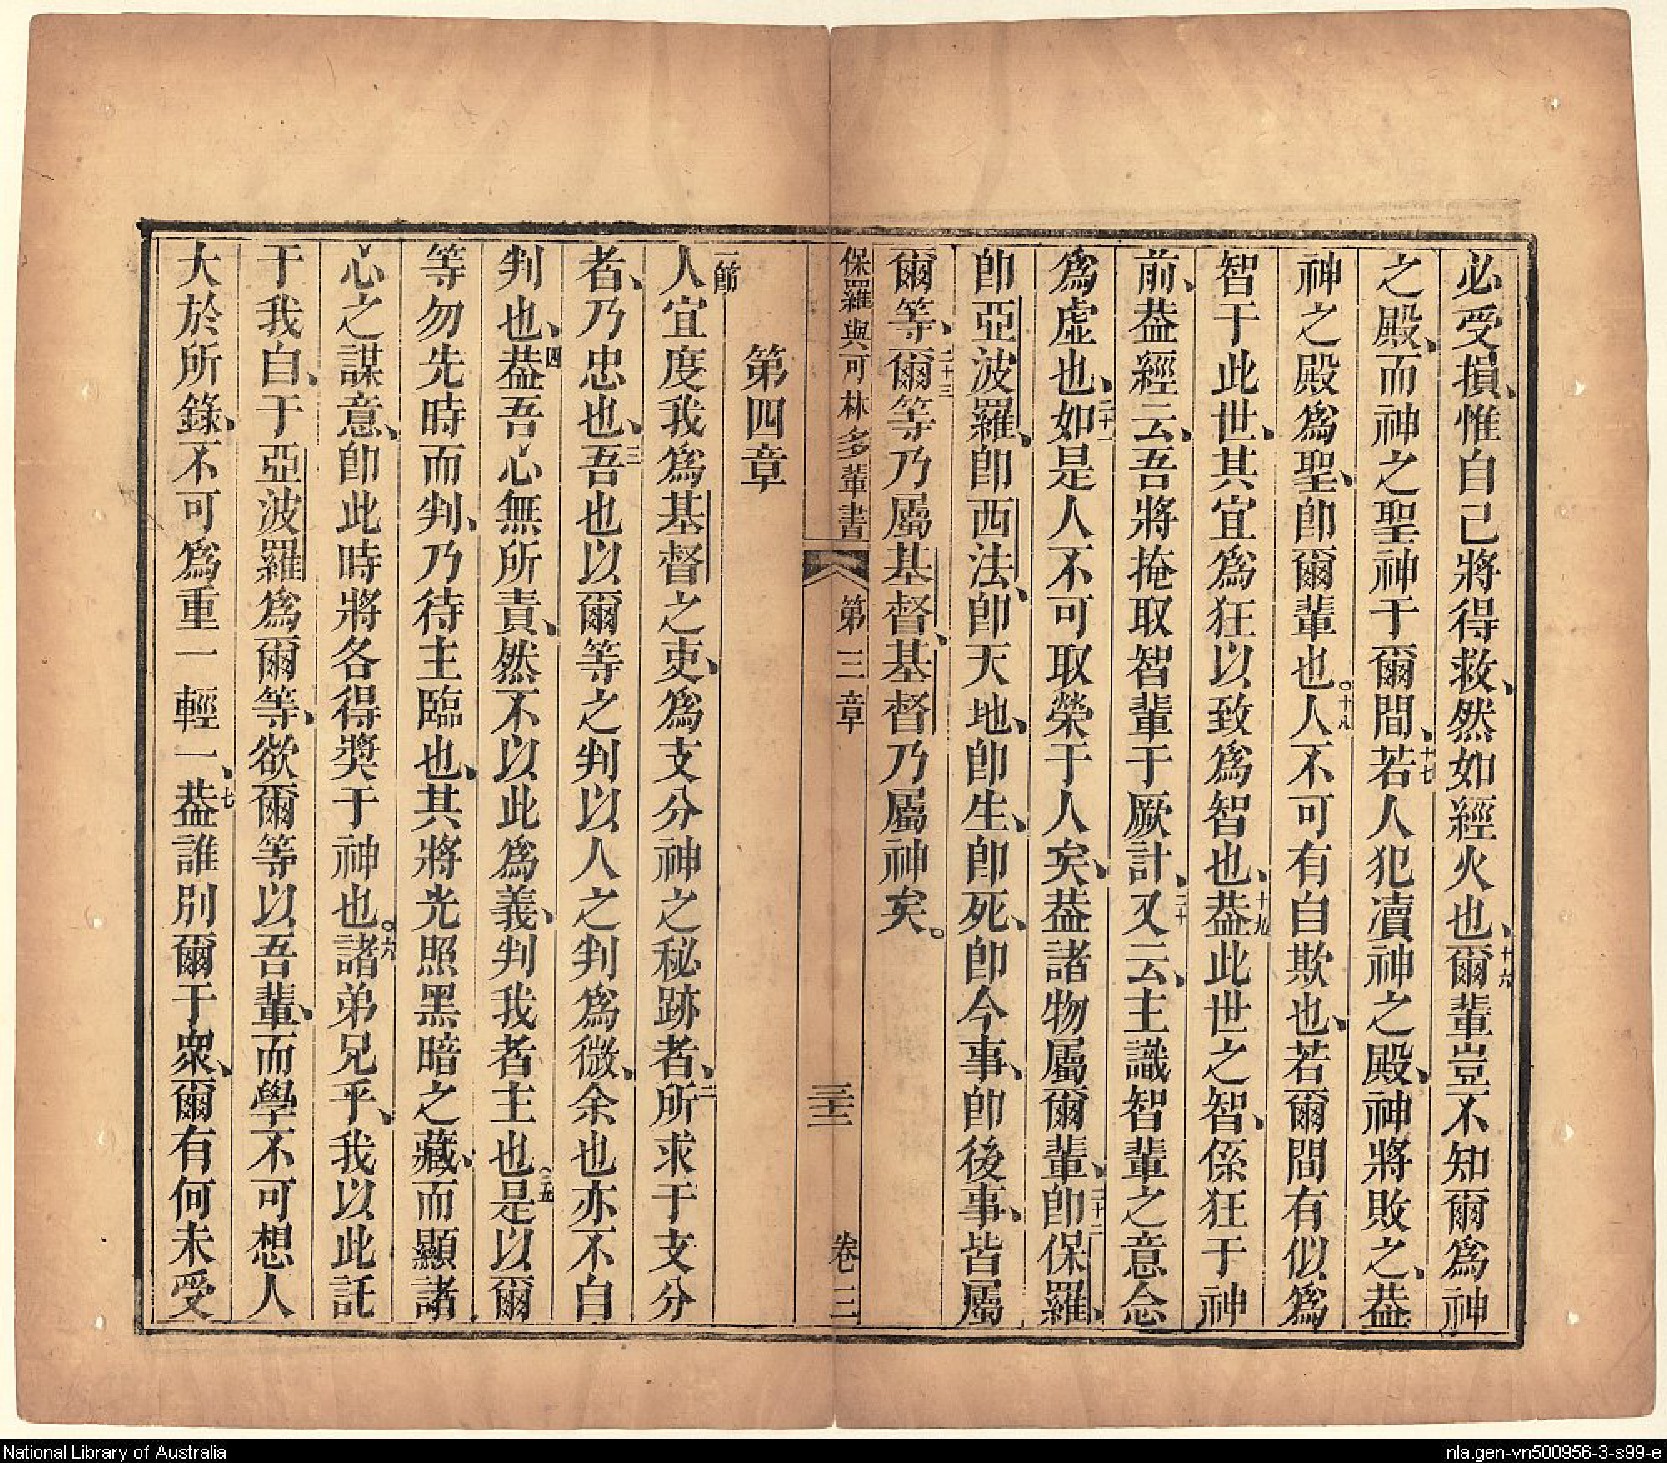 必受損、惟自己將得救、然如經火也、十六爾輩豈不知爾爲神
之殿、而神之聖神于爾間、十七若人犯凟神之殿、神將敗之、葢
神之殿爲聖、卽爾輩也。十八人不可有自欺也、若爾間有似爲
智于此世、其宜爲狂以致爲智也、十九葢此世之智、係狂于神
前、葢經云、吾將掩取智輩于厥計、二十又云、主識智輩之意念
爲虛也、二十一如是人不可取榮于人矣、葢諸物屬爾輩、二十二卽保羅、
卽亞波羅、卽西法、卽天地、卽生、卽死、卽今事、卽後事、皆屬
爾等、二十三爾等乃屬基督、基督乃屬神矣。
保羅與可林多輩書 第三章 三十二 卷三
第四章
一節人宜度我爲基督之吏、爲支分神之秘跡者、二所求于支分
者、乃忠也、三吾也以爾等之判以人之判爲微、余也亦不自
判也、四葢吾心無所責、然不以此爲義、判我者主也。五是以爾
等勿先時而判、乃待主臨也、其將光照黑暗之藏、而顯諸
心之謀意、卽此時將各得奬于神也。六諸弟兄乎、我以此託
于我自、于亞波羅爲爾等、欲爾等以吾輩、而學不可想人
大於所錄、不可爲重一輕一、七葢誰別爾于衆、爾有何未受
National Library of Australia
nla.gen-vn500956-3-s99-e